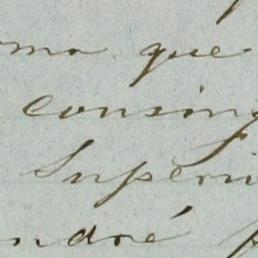 ma que
consin
Superi
ndré p